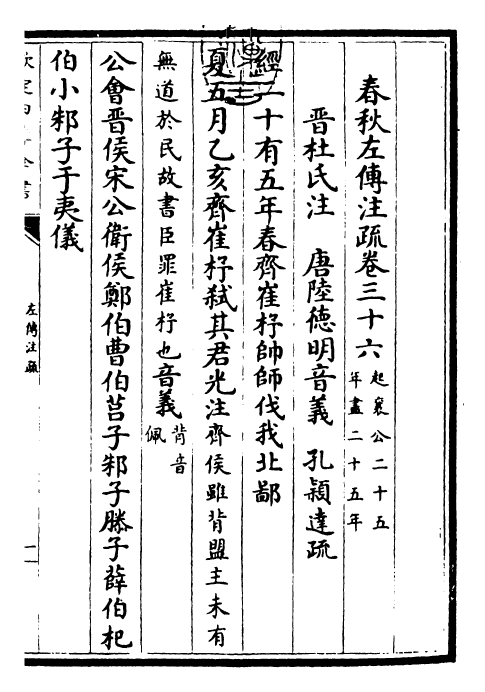 春秋左傳注疏卷三十六起襄公二十五年盡二十五年
晉杜氏注 唐陸德明音義 孔穎達疏
經二十有五年春齊崔杼帥師伐我北鄙
夏五月乙亥齊崔杼弑其君光注齊侯雖背盟主未有
無道於民故書臣罪崔杼也音義背音佩
公會晉侯宋公衛侯鄭伯曹伯莒子邾子滕子薛伯杞
伯小邾子于夷儀
左傳注疏